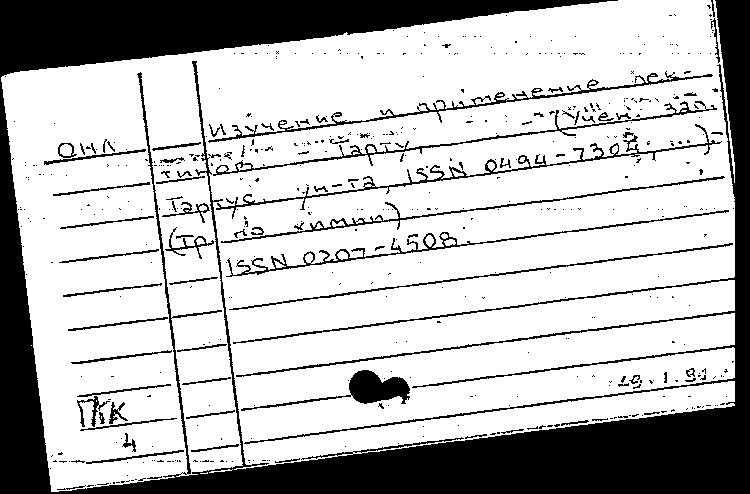 Изучение и применение лек-
ОНЛ
тинов. - Тарту, - (Учен. зап.
Тартус. ун-та, ISSN 0494-7304; ...).-
(Тр. по химии)
ISSN 0207-4508.
29.1.91
ГКК
4